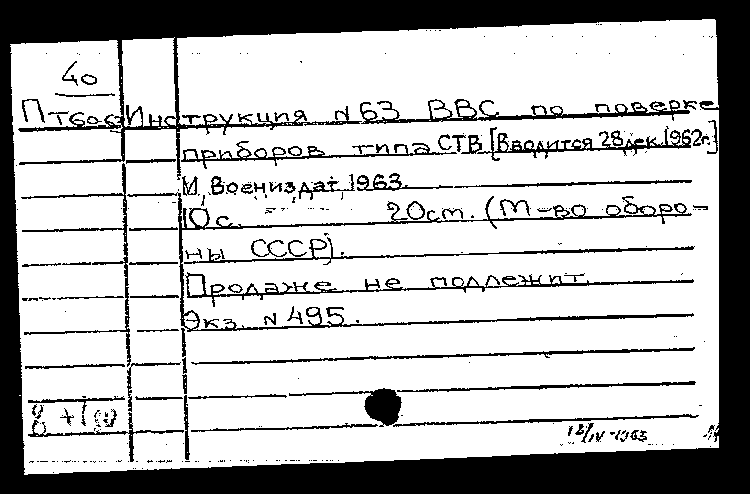 40
ПТ6063 Инструкция N 63 ВВС по поверке
приборов типа СТВ [Вводится 28 дек. 1962 г.]
М., Воениздат, 1963.
10 с. 20 cm. (М-во оборо-
ны СССР).
Продаже не подлежит.
Экз. N 495.
8
12/IV-1963